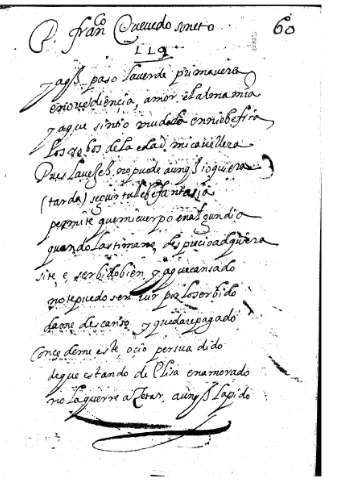 D. fran.co Quevedo soneto 60
119
ya q̃ paso la verde primavera
en tu obediençia, amor, el alma mia
ya que sintio mudado en nieve fria
Los robos de la edad, mi cavellera
Pues la vejez no puede aunq̃ io quiera
(tarda) seguir tu leve fantasia
permite que mi cuerpo en algun dia
quando lastima no desprecio adquiera
si te e servido bien, ya que cansado
no te puedo servir por lo servido
dame descanso y quedare pagado
conçedeme este ocio persuadido
de que estando de Elisa enamorado
no la querre açetar, aunq̃ la pido